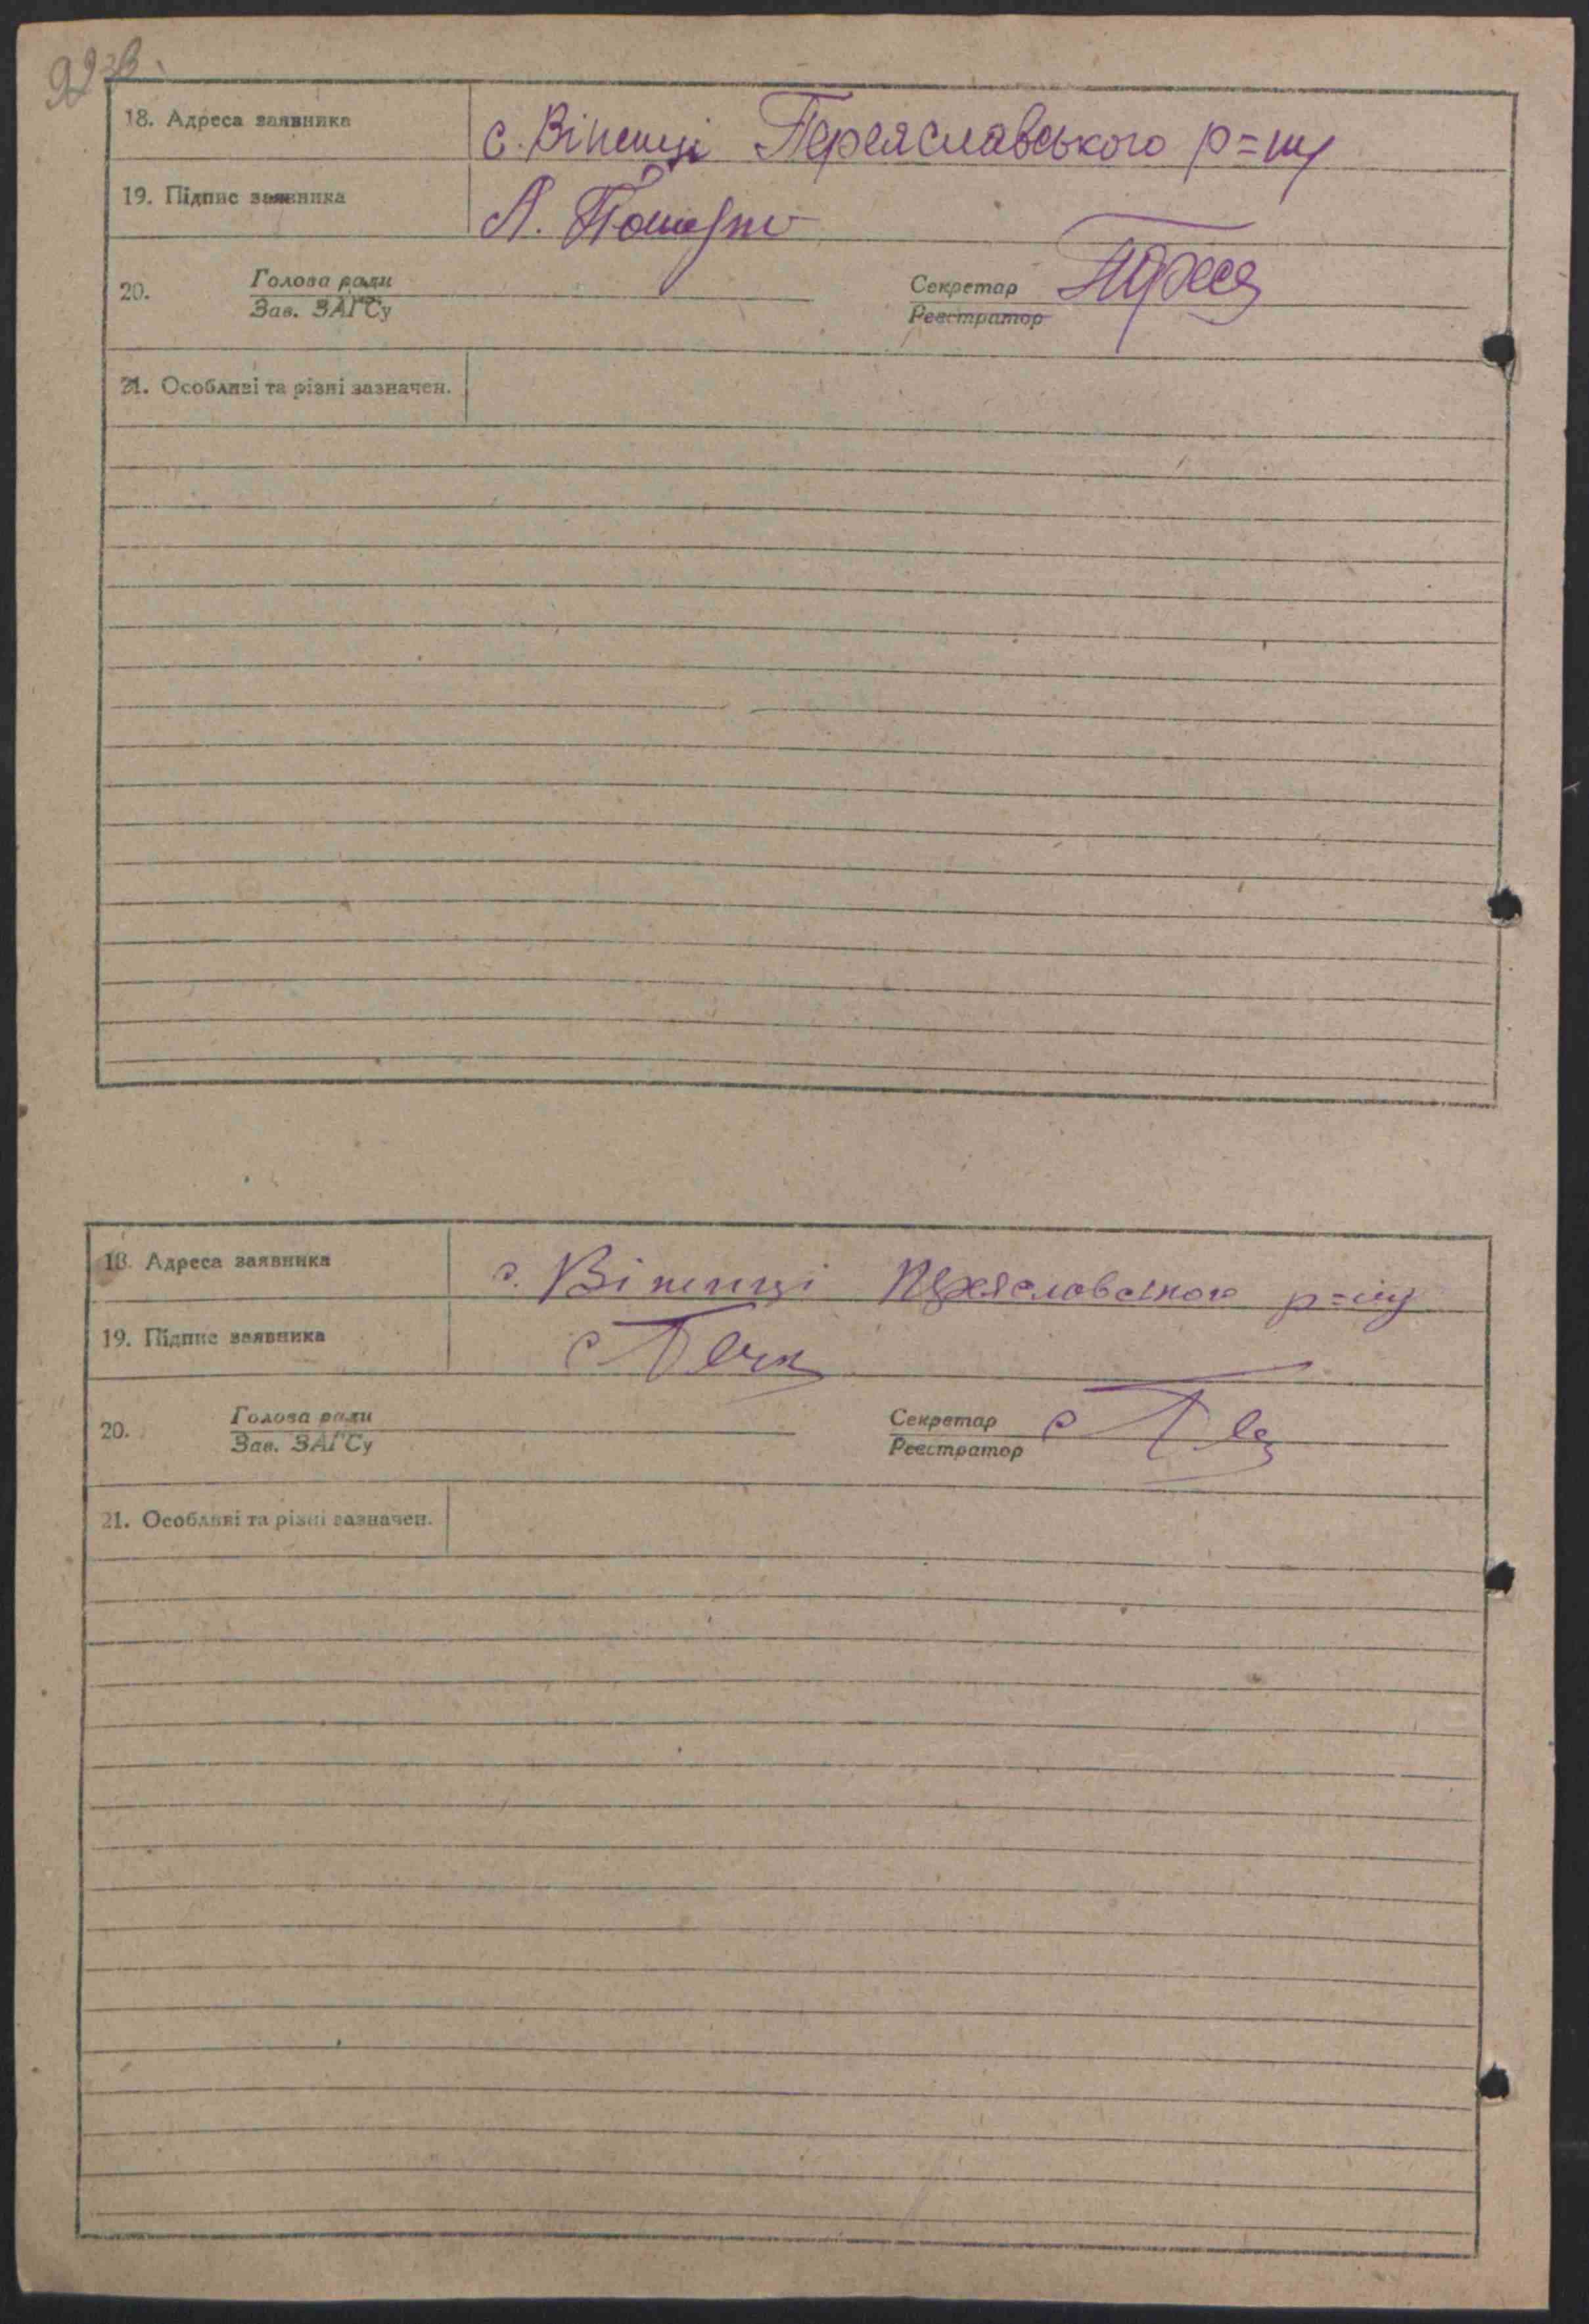 18. Адреса заявника с. Віненці Переяславського р=ну
19. Підпис заявника А.
20. Голова ради Секретар
Зав. ЗАГСу Реєстратор
21. Особливі та різні зазначен.
18. Адреса заявника с. Віненці Переяславського р=ну
19. Підпис заявника
20. Голова ради Секретар
Зав. ЗАГСу Реєстратор
21. Особливі та різні зазначен.